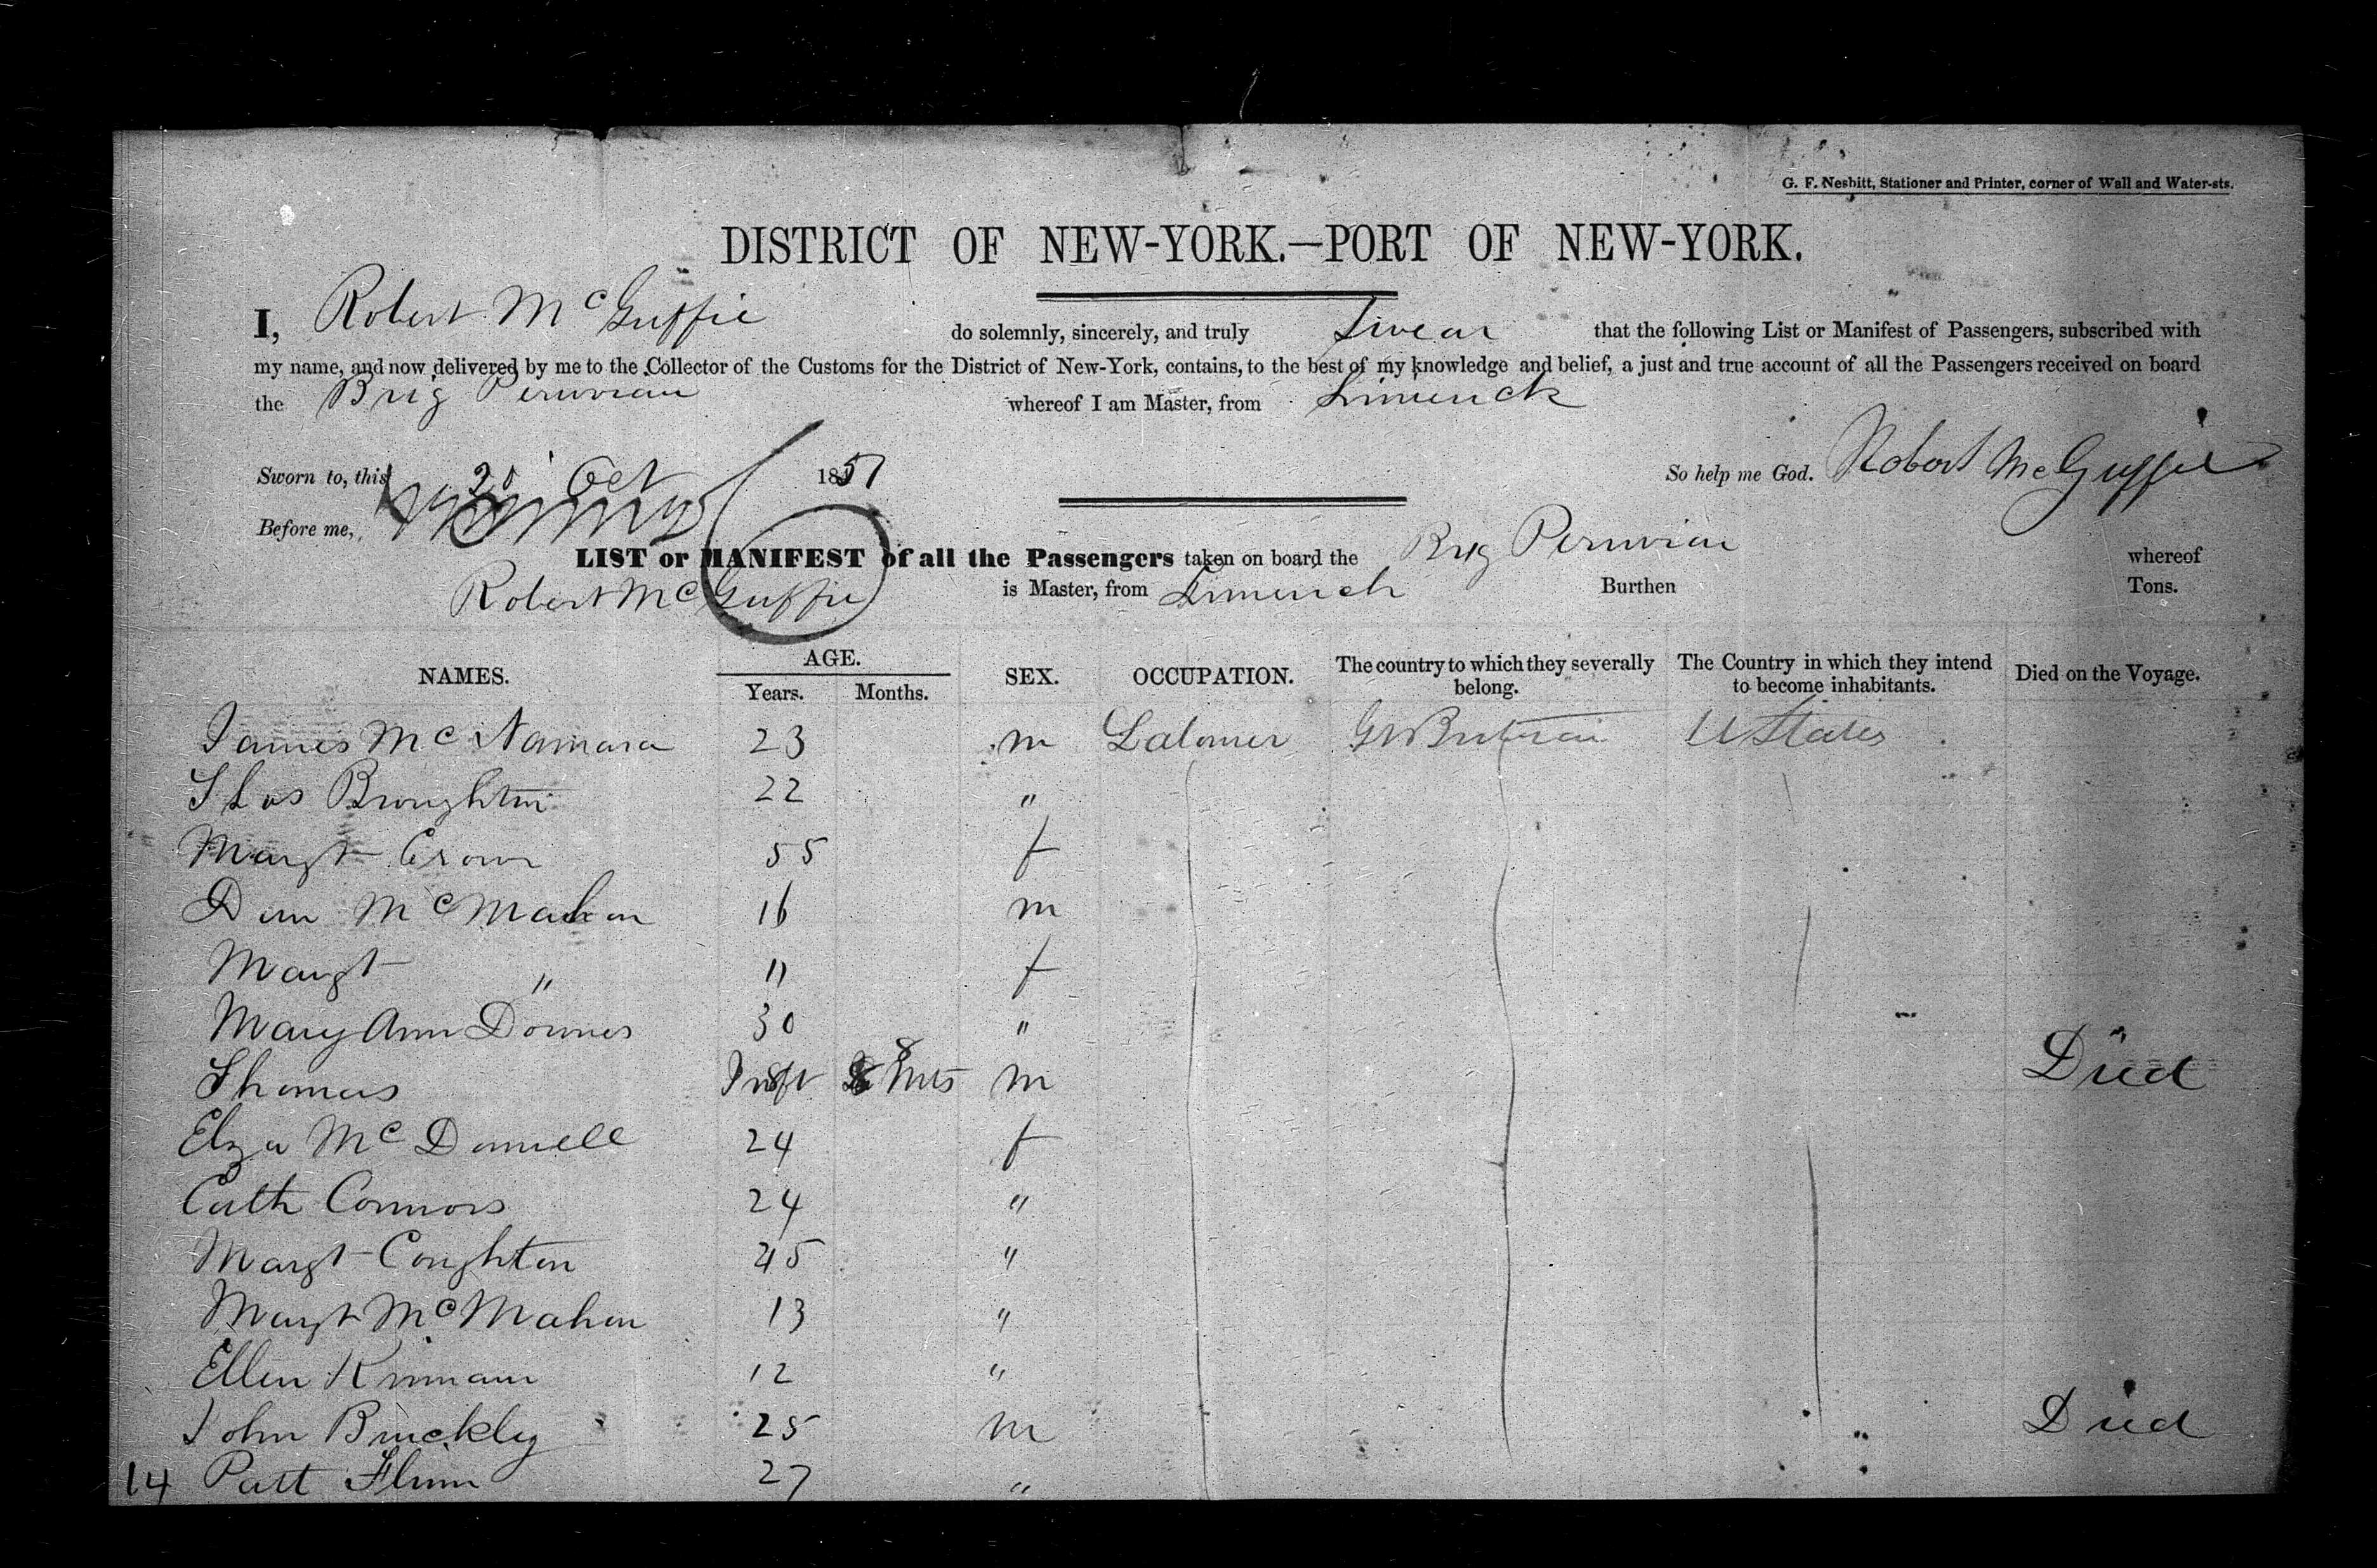 G. F. Nesbitt, Stationer and Printer, corner of Wall and Water-sts.
DISTRICT OF NEW-YORK.—PORT OF NEW-YORK.
I, Robert McGuffie do solemnly, sincerely, and truly Swear that the following List or Manifest of Passengers, subscribed with
my name, and now delivered by me to the Collector of the Customs for the District of New-York, contains, to the best of my knowledge and belief, a just and true account of all the Passengers received on board
the Brig Peruvian whereof I am Master, from Limerick
Sworn to, this 25 Oct 1851 So help me God. Robert McGuffie
Before me,
LIST or MANIFEST of all the Passengers taken on board the Brig Peruvian whereof
Robert McGuffie is Master, from Limerick Burthen Tons.
NAMES. AGE. Years. Months. SEX. OCCUPATION. The country to which they severally belong. The Country in which they intend to become inhabitants. Died on the Voyage.
James McNamara 23 m Labourer Gt Britain U States
Thos Broughton 22 "
Margt Crown 55 f
McMahon 16 m
Margt " 11 f
Mary Ann Downes 30 "
Thomas Inft 8 Mts m Died
Elza McDonnell 24 f
Cath Connors 24 "
Margt Coughton 45 "
Margt McMahon 13 "
Ellen Kinnam 12 "
John Buckley 25 m Died
14 Patt Flinn 27 "